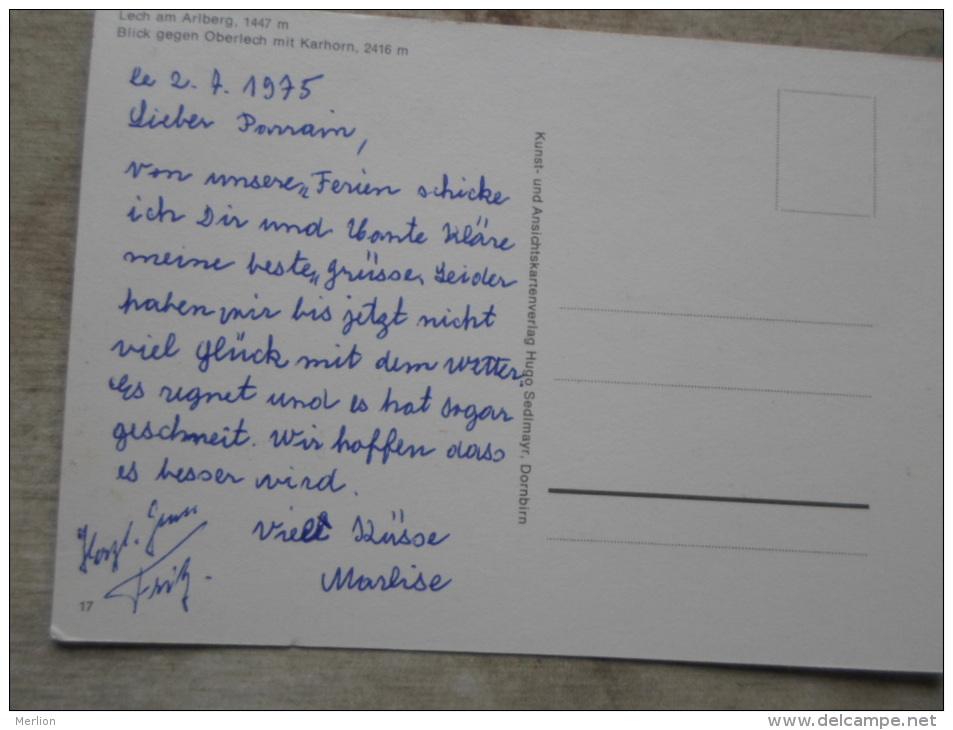 Lech am Arlberg, 1447 m
Blick gegen Oberlech mit Karhorn, 2416 m
le 2. 7. 1975
Lieber Parrain,
Von unsere„ Ferien schicke
ich Dir und Tante Kläre
meine beste„ Grüsse. Leider
haben wir bis jetzt nicht
viel Glück mit dem Wetter.
Es regnet und es hat sogar
geschneit. Wir hoffen dass
es besser wird.
Viele Küsse
Marlise
Herzl. Gruss
Fritz.
17
Kunst- und Ansichtskartenverlag Hugo Sedlmayr, Dornbirn
Merlion
http://www.delcampe.net